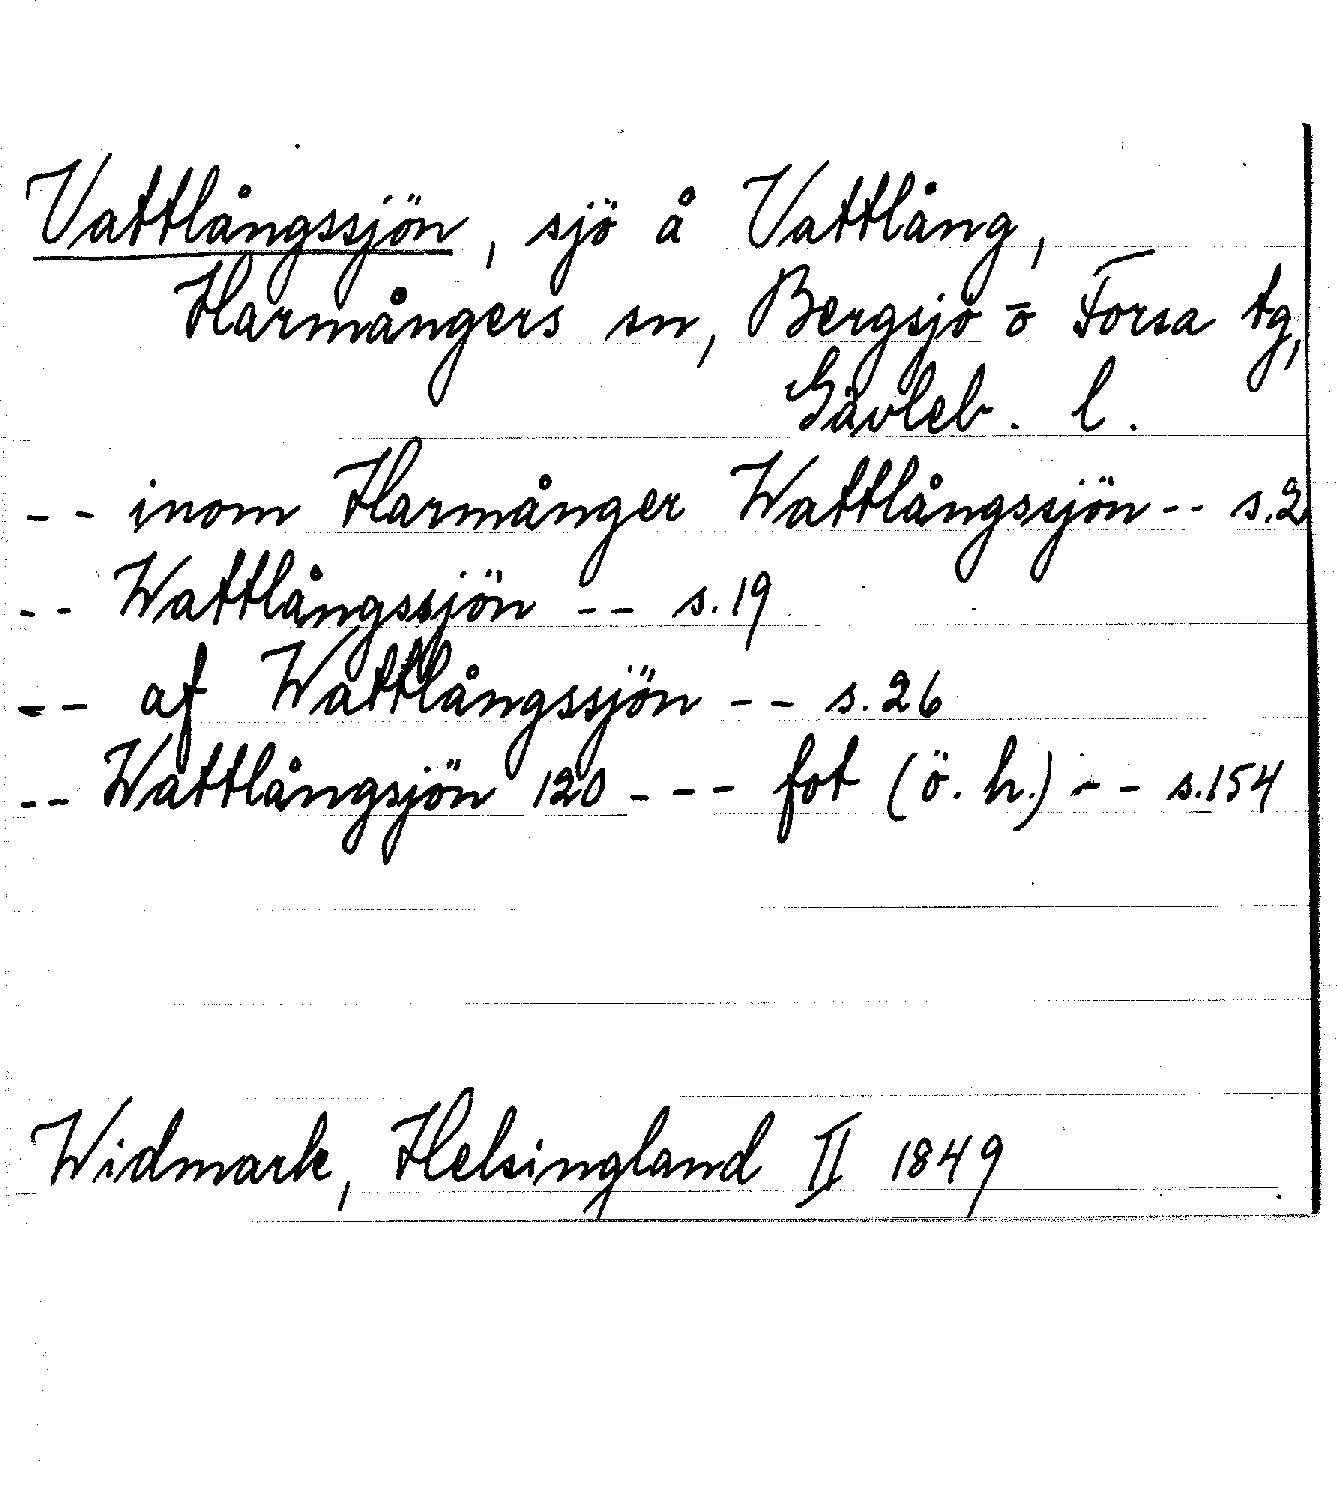 Vattlångssjön, sjö å Vattlång,
Harmångers sn, Bergsjö o Forsa tg,
Gävleb. l.
-- inom Harmånger Wattlångssjön -- s.2
-- Wattlångssjön -- s.19
-- af Wattlångssjön -- s.26
-- Wattlångsjön 120 --- fot (ö.h.) -- s.154
Widmark, Helsingland II 1849